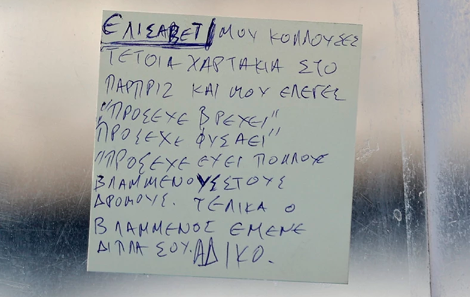 ΕΛΙΣΑΒΕΤ ΜΟΥ ΚΟΛΛΟΥΣΕΣ
ΤΕΤΟΙΑ ΧΑΡΤΑΚΙΑ ΣΤΟ
ΠΑΡΠΡΙΖ ΚΑΙ ΜΟΥ ΕΛΕΓΕΣ
"ΠΡΟΣΕΧΕ ΒΡΕΧΕΙ"
ΠΡΟΣΕΧΕ ΦΥΣΑΕΙ"
"ΠΡΟΣΕΧΕ ΕΧΕΙ ΠΟΛΛΟΥΣ
ΒΛΑΜΜΕΝΟΥΣ ΣΤΟΥΣ
ΔΡΟΜΟΥΣ. ΤΕΛΙΚΑ Ο
ΒΛΑΜΜΕΝΟΣ ΕΜΕΝΕ
ΔΙΠΛΑ ΣΟΥ. ΑΔΙΚΟ.